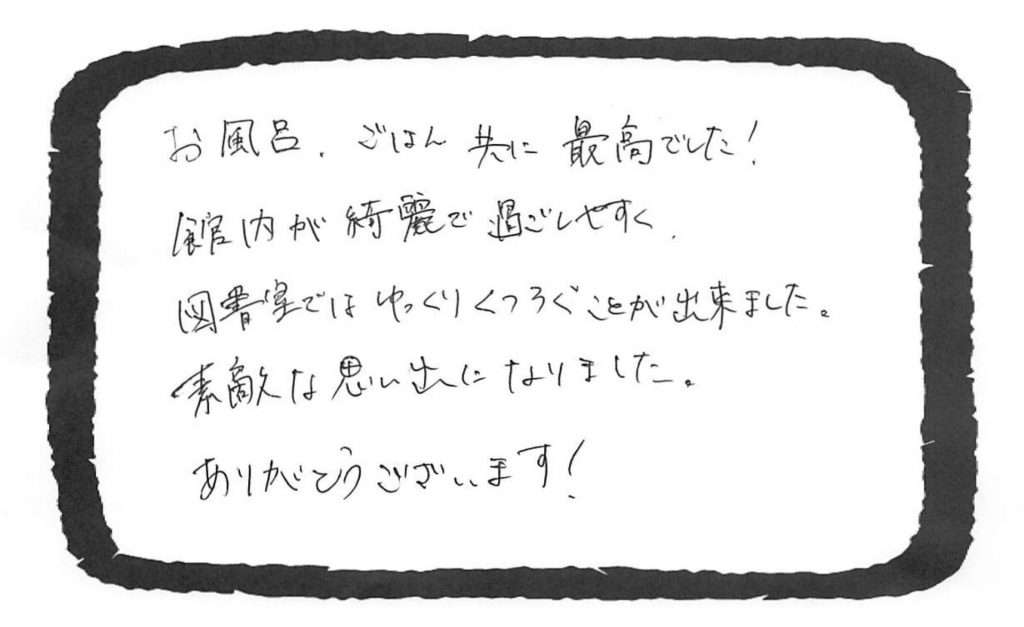 お風呂、ごはん 共に 最高でした!
館内が 綺麗で 過ごしやすく、
図書室では ゆっくりくつろぐことが出来ました。
素敵な思い出になりました。
ありがとうございます!